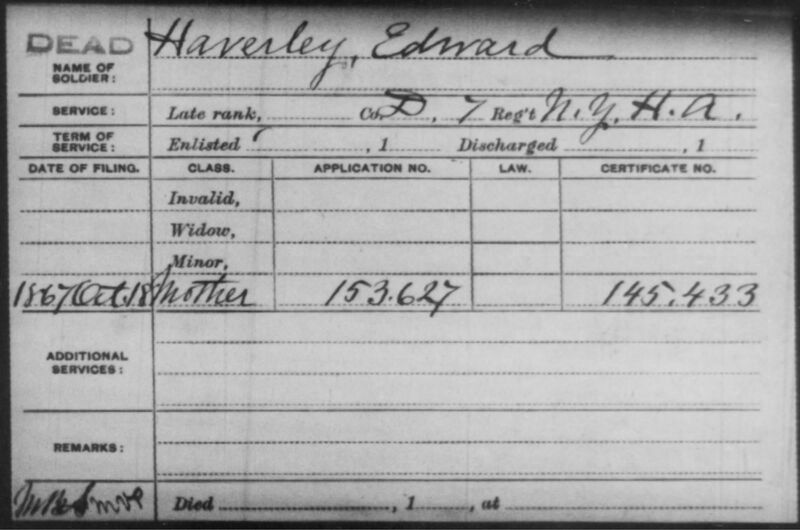 DEAD Haverley, Edward
NAME OF
SOLDIER:
SERVICE: Late rank, Co. D, 7 Reg't N.Y. H.A.
TERM OF
SERVICE: Enlisted , 1 Discharged , 1
DATE OF FILING. CLASS. APPLICATION NO. LAW. CERTIFICATE NO.
Invalid,
Widow,
Minor,
1867 Oct. 18 Mother 153.627 145.433
ADDITIONAL
SERVICES:
REMARKS:
Died , 1 , at